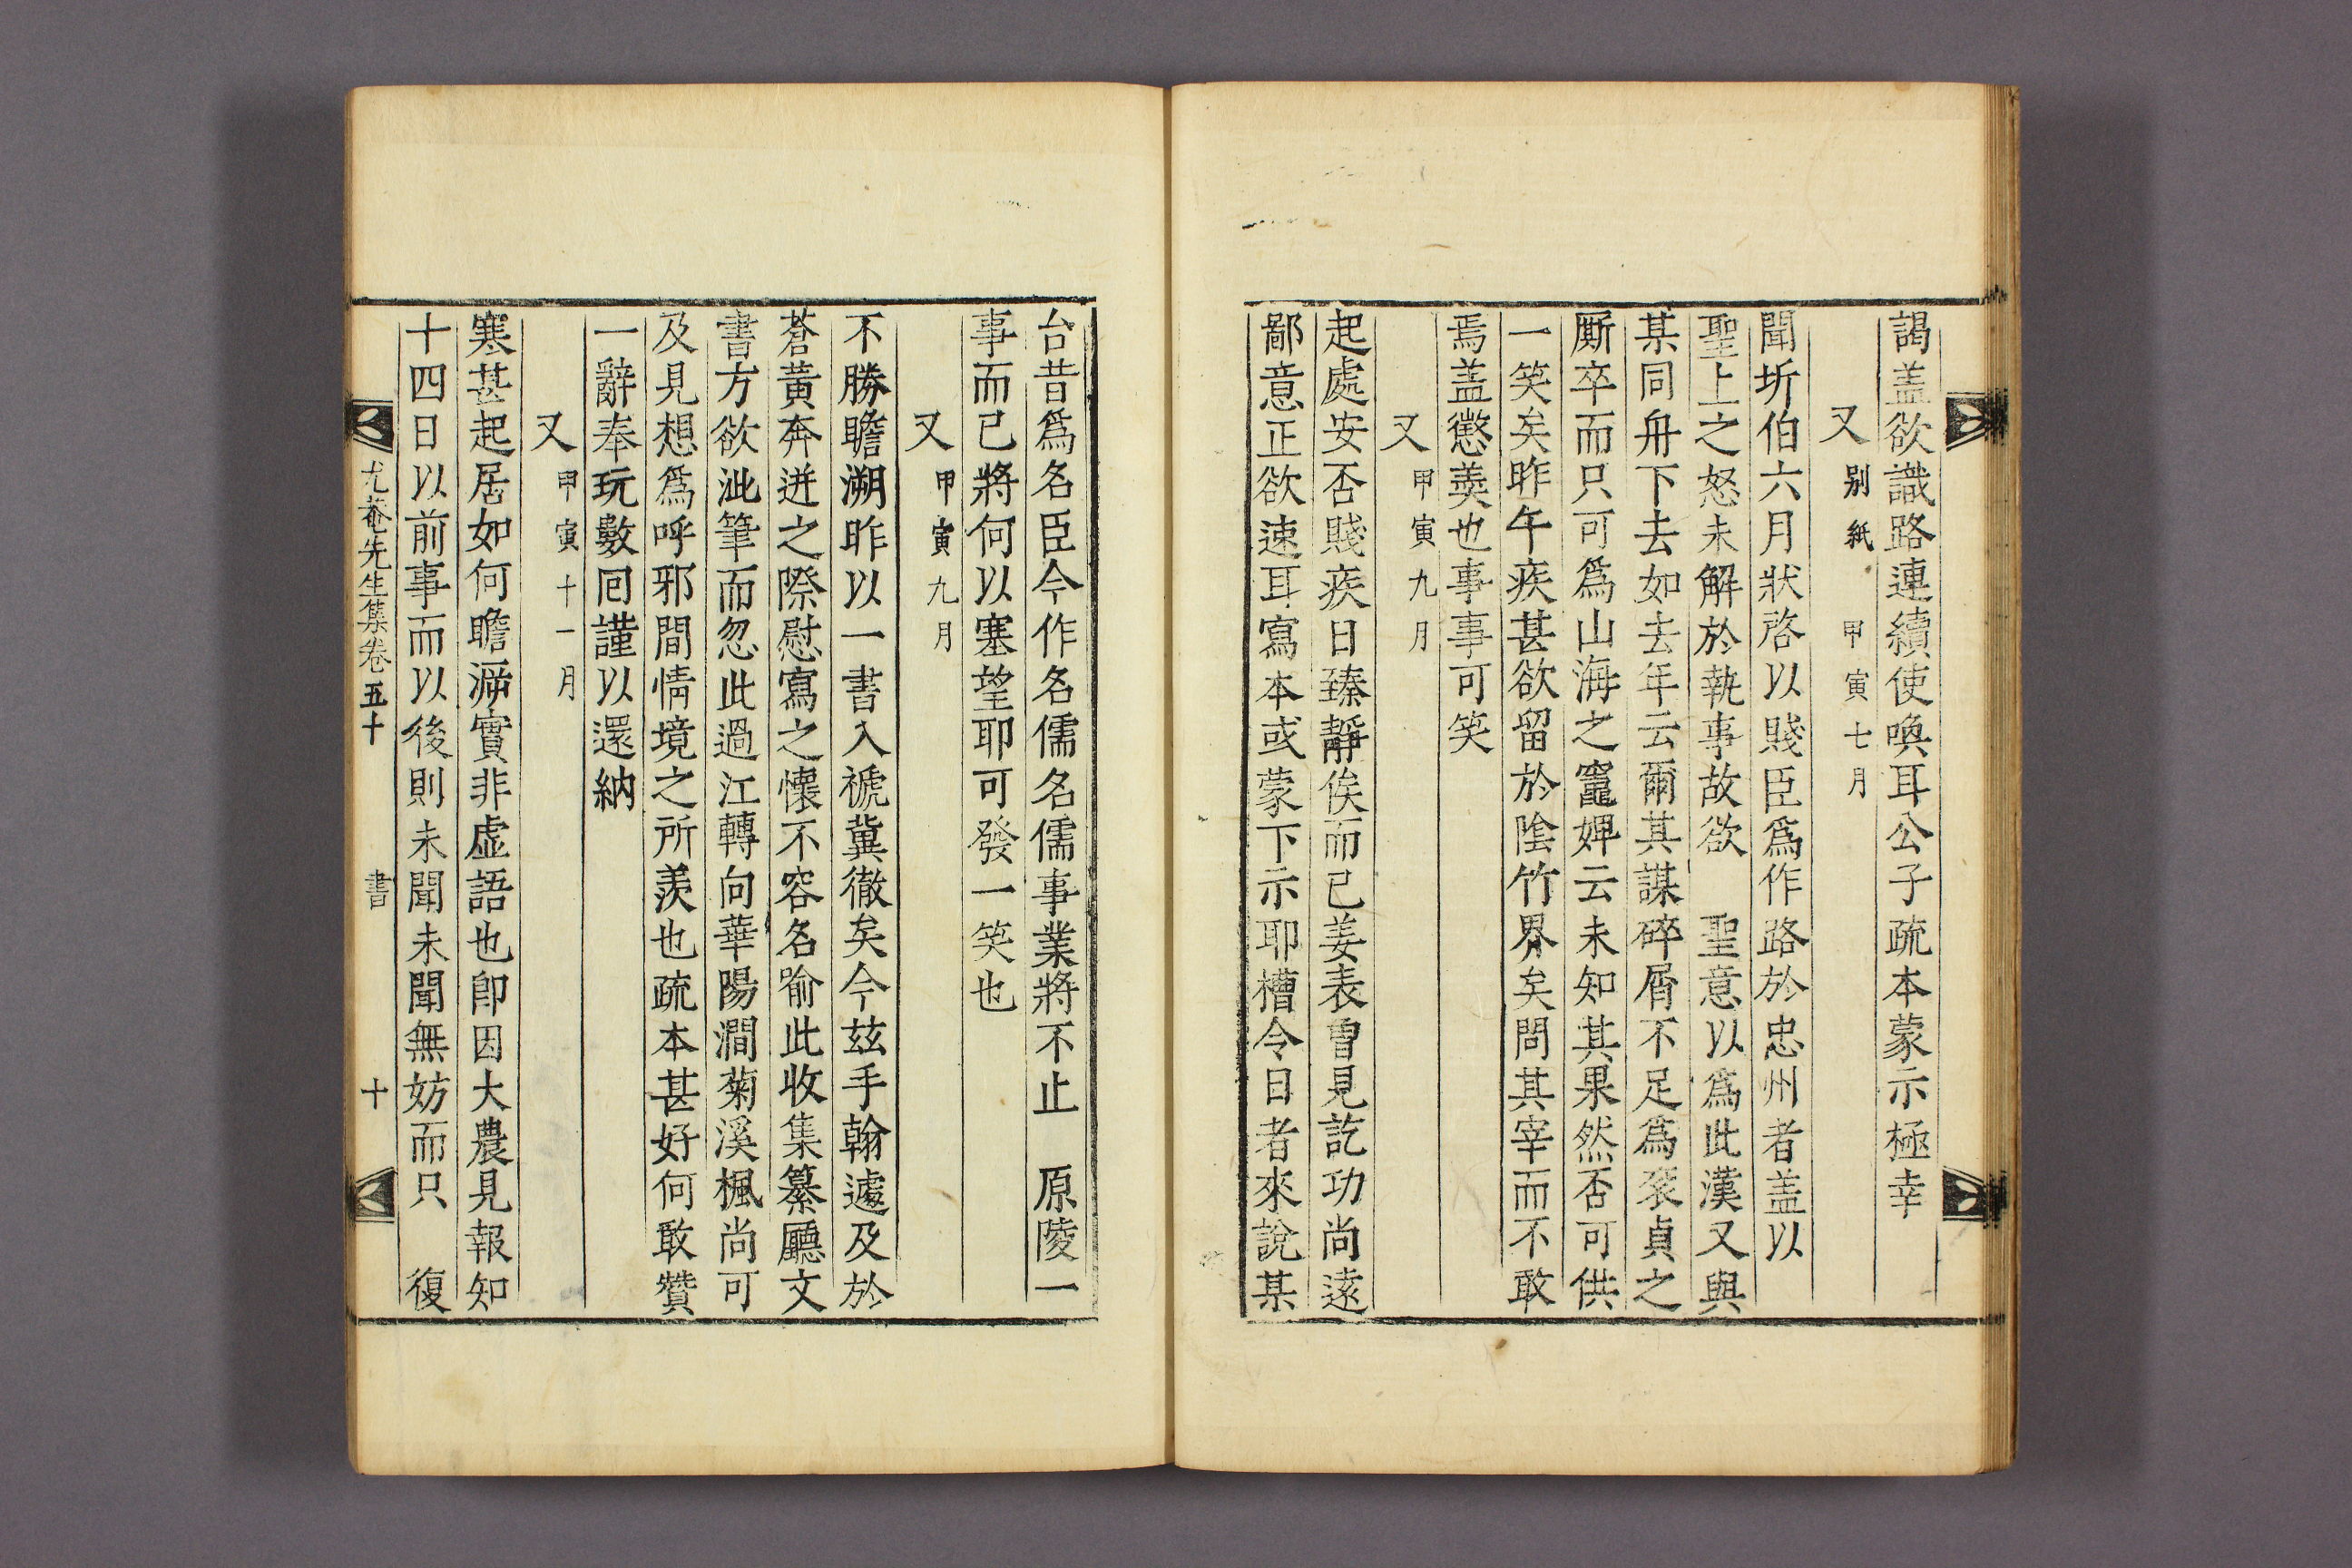 謁盖欲識路連續使喚耳公子疏本蒙示極幸
又 别紙 甲寅七月
聞圻伯六月狀啓以賤臣爲作路於忠州者盖以
聖上之怒未解於執事故欲 聖意以爲此漢又與
某同舟下去如去年云爾其謀碎屑不足爲衮貞之
厮卒而只可爲山海之竈婢云未知其果然否可供
一笑矣昨午疾甚欲留於陰竹界矣問其宰而不敢
焉盖懲羹也事事可笑
又 甲寅九月
起處安否賤疾日臻靜俟而已姜表曾見訖功尚遠
鄙意正欲速耳寫本或蒙下示耶槽令日者來說某
台昔爲名臣今作名儒名儒事業將不止 原陵一
事而已將何以塞望耶可發一笑也
又 甲寅九月
不勝瞻溯昨以一書入褫冀徹矣今玆手翰遽及於
蒼黃奔迸之際慰寫之懷不容名喩此收集纂廳文
書方欲泚筆而忽此過江轉向華陽澗菊溪楓尚可
及見想爲呼邪間情境之所羨也疏本甚好何敢贊
一辭奉玩數回謹以還納
又 甲寅十一月
寒甚起居如何瞻溯實非虛語也卽因大農見報知
十四日以前事而以後則未聞未聞無妨而只 復
尤菴先生集卷五十 書 十